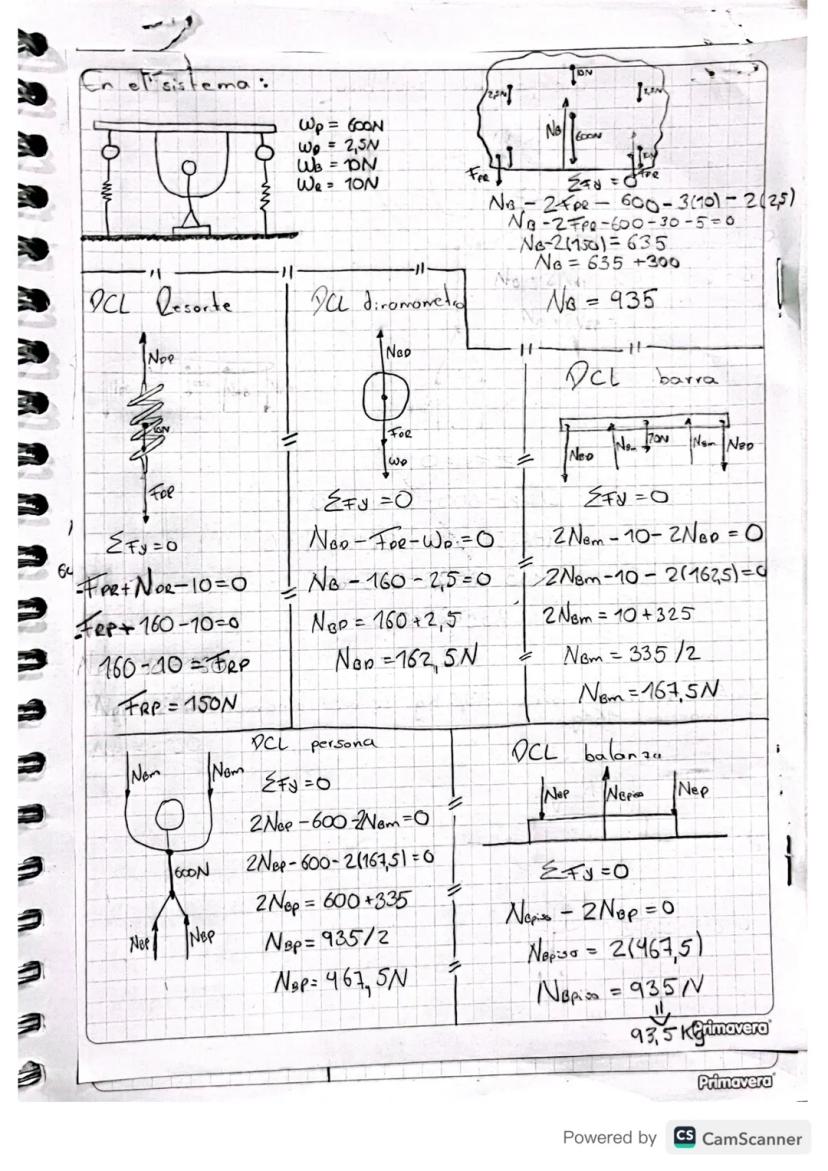 En el sistema:
Wp = 600N
WD = 2,5N
WB = 10N
WR = 10N
10N
2,5N
2,5N
NB
600N
10N
FPR
FPR
ΣFy = 0
NB - 2FPR - 600 - 3(10) - 2(2,5)
NB - 2FPR - 600 - 30 - 5 = 0
NB - 2(150) = 635
NB = 635 + 300
NB = 935
DCL Resorte
NDR
10N
FDR
ΣFy = 0
-FPR + NDR - 10 = 0
-FRP + 160 - 10 = 0
160 - 10 = FRP
FRP = 150N
DCL dinamometro
NBD
FDR
WD
ΣFy = 0
NBD - FDR - WD = 0
NB - 160 - 2,5 = 0
NBD = 160 + 2,5
NBD = 162,5N
DCL barra
NBD
NBm
10N
NBm
NBD
ΣFy = 0
2NBm - 10 - 2NBD = 0
2NBm - 10 - 2(162,5) = 0
2NBm = 10 + 325
NBm = 335 /2
NBm = 167,5N
DCL persona
NBm
NBm
600N
NBP
NBP
ΣFy = 0
2NBP - 600 - 2NBm = 0
2NBP - 600 - 2(167,5) = 0
2NBP = 600 + 335
NBP = 935/2
NBP = 467,5N
DCL balanza
NBP
NBpiso
NBP
ΣFy = 0
NBpiso - 2NBP = 0
NBpiso = 2(467,5)
NBpiso = 935N
93,5 Kg
Primavera
Primavera
Powered by CS CamScanner